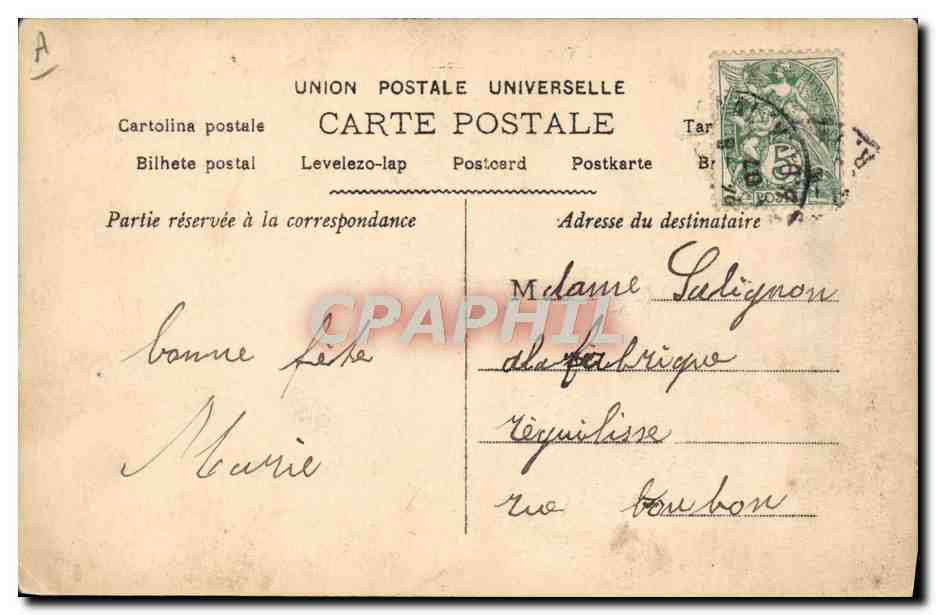 A
UNION POSTALE UNIVERSELLE
Cartolina postale CARTE POSTALE Tar
Bilhete postal Levelezo-lap Postcard Postkarte Br
Partie réservée à la correspondance
Adresse du destinataire
bonne fête
Marie
Madame Salignon
a la fabrique
réguilisse
rue bonbon
CPAPHIL
5
POSTES